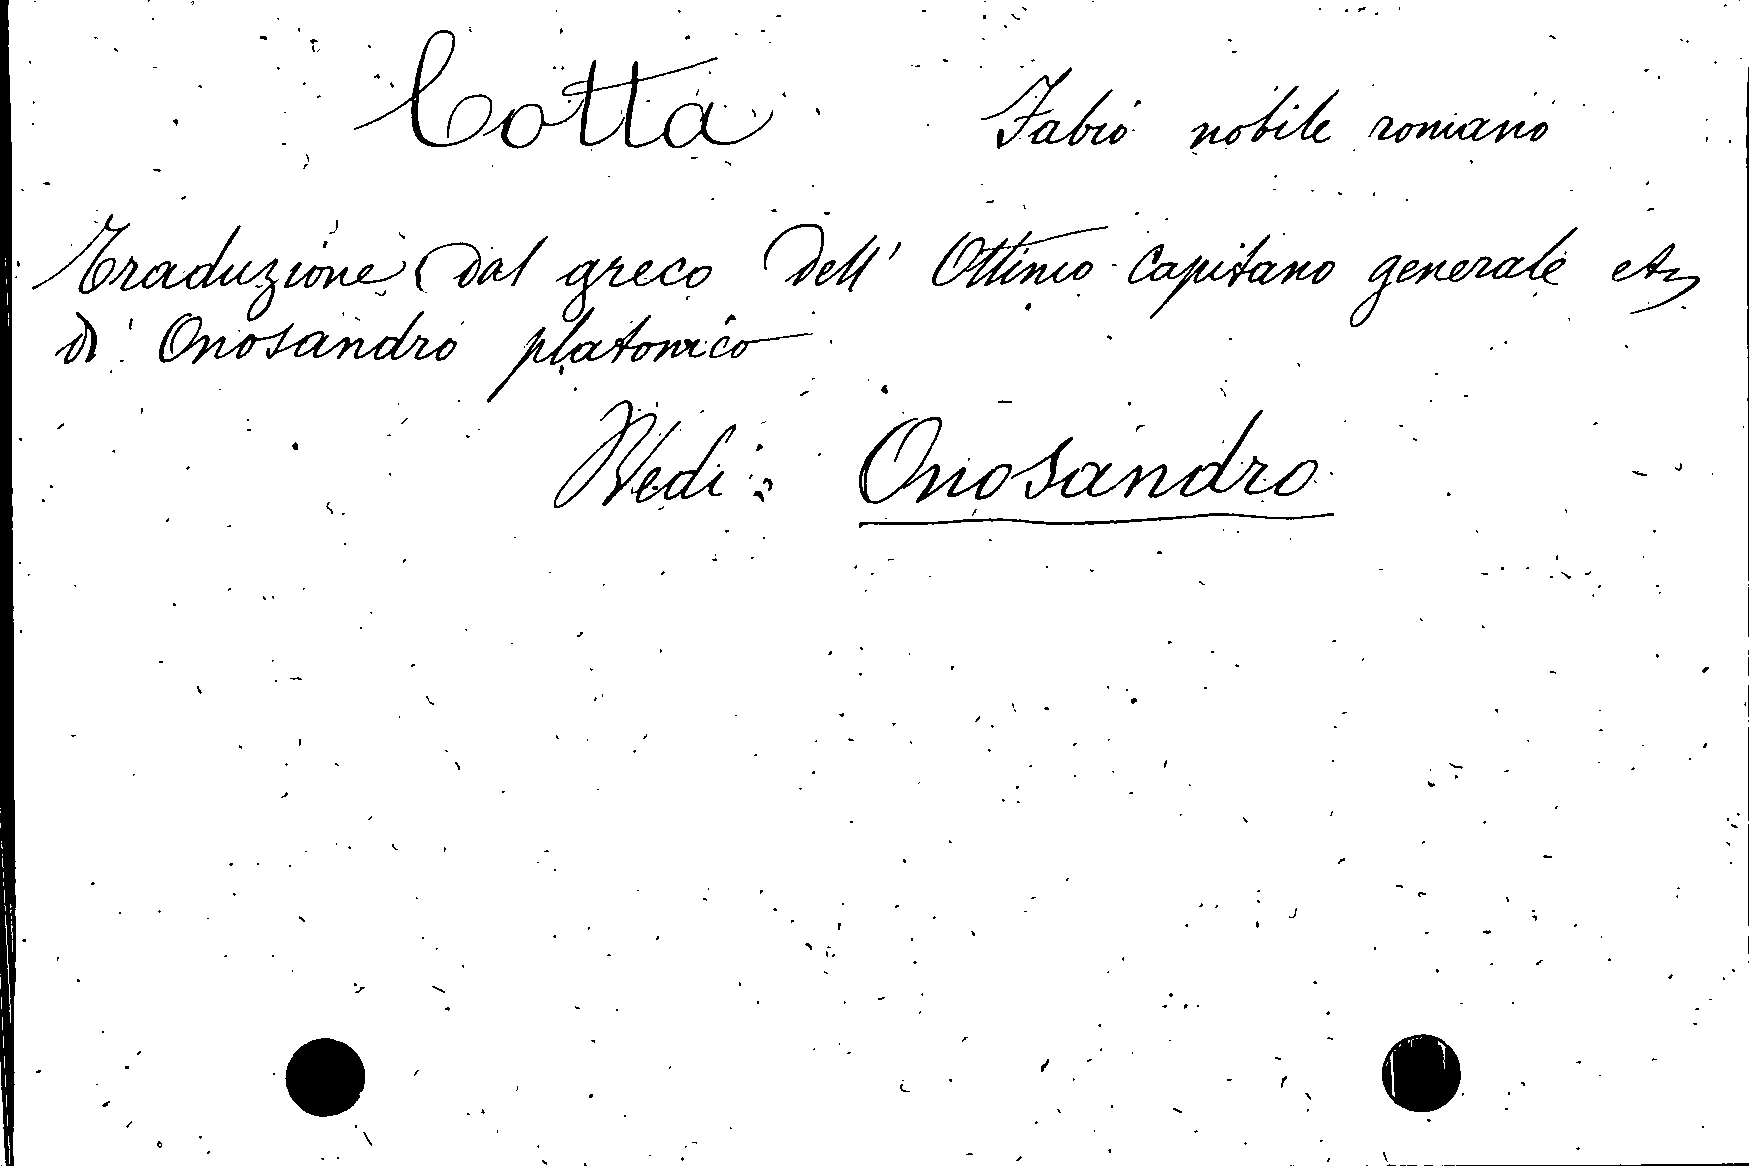 Cotta Fabio nobile romano
Traduzione dal greco dell' Ottimo Capitano generale etc
di Onosandro platonico
Vedi: Onosandro